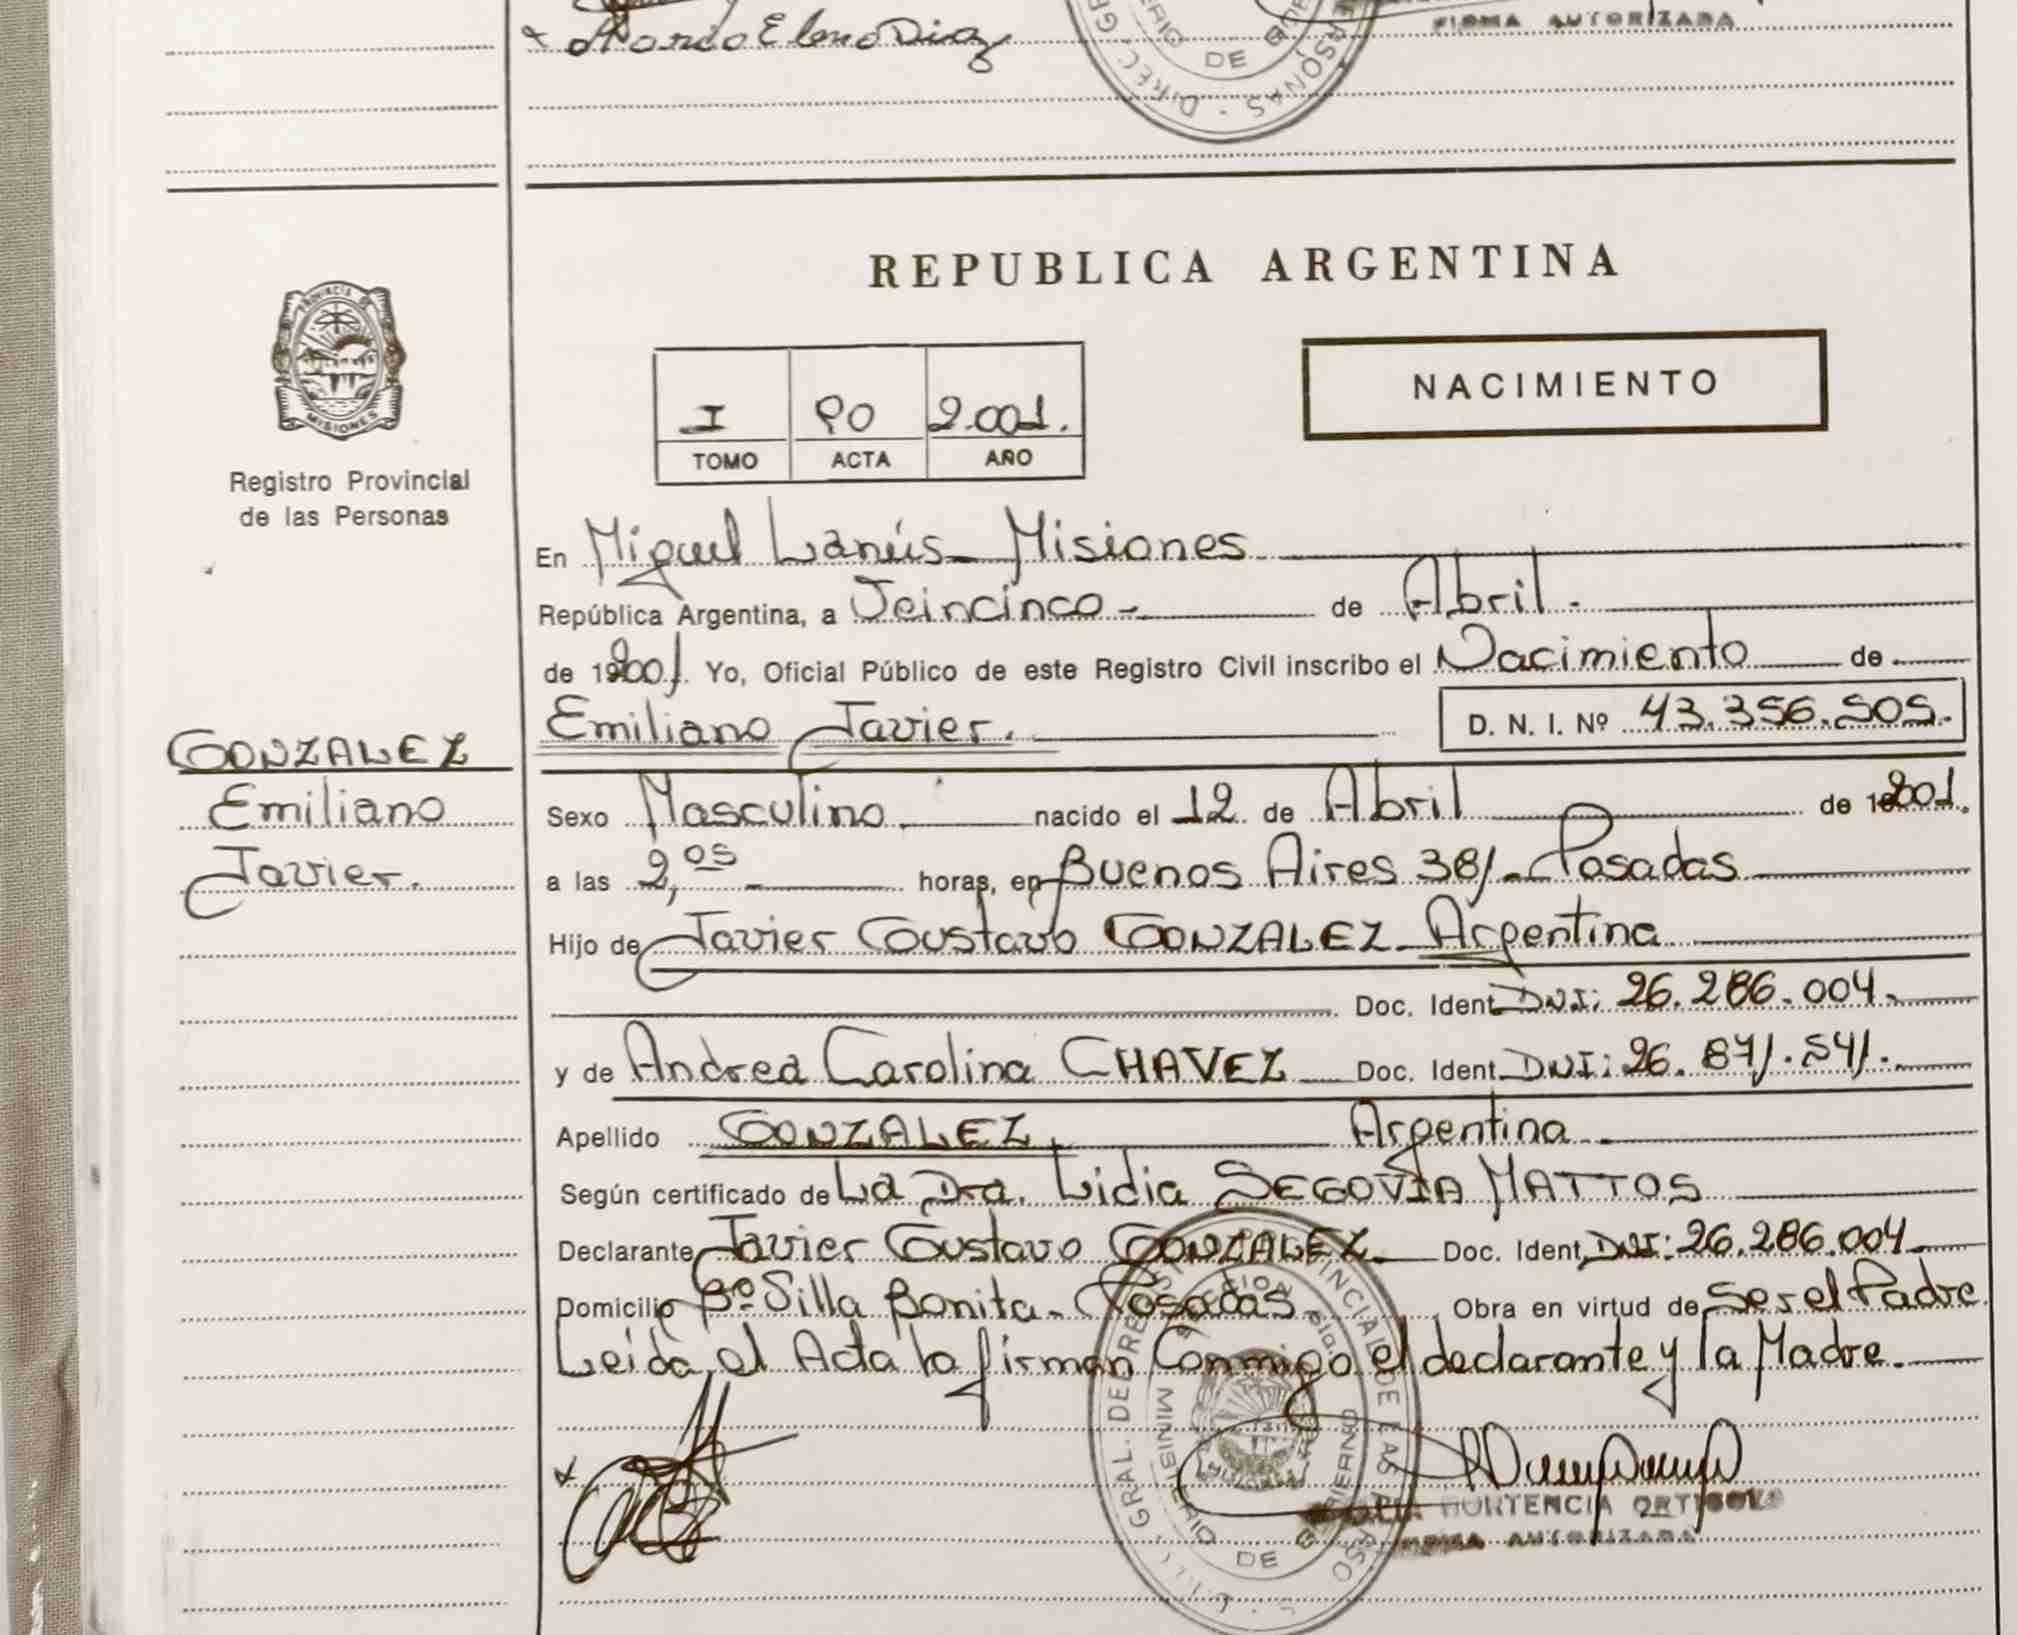 Elena Diaz
FIRMA AUTORIZADA
DE
REPUBLICA ARGENTINA
PROVINCIA DE
MISIONES
Registro Provincial
de las Personas
I 90 2.001.
TOMO ACTA AÑO
NACIMIENTO
En Miguel Lanús - Misiones
República Argentina, a Veincinco - de Abril.
de 19 2001. Yo, Oficial Público de este Registro Civil inscribo el Nacimiento de
Emiliano Javier. D. N. I. Nº 43.356.505.
GONZALEZ
Emiliano
Javier.
Sexo Masculino nacido el 12 de Abril de 19 2001.
a las 2,05 horas, en Buenos Aires 381. Posadas
Hijo de Javier Gustavo GONZALEZ - Argentina
Doc. Ident. DNI: 26.286.004.
y de Andrea Carolina CHAVEZ Doc. Ident. DNI: 26.871.541.
Apellido GONZALEZ. Argentina
Según certificado de La Dra. Lidia SEGOVIA MATTOS
Declarante Javier Gustavo GONZALEZ. Doc. Ident. DNI: 26.286.004.
Domicilio Bº Silla Bonita - Posadas. Obra en virtud de Ser el Padre
Leida el Acta la firman Conmigo el declarante y la Madre.
HORTENCIA
FIRMA AUTORIZADA